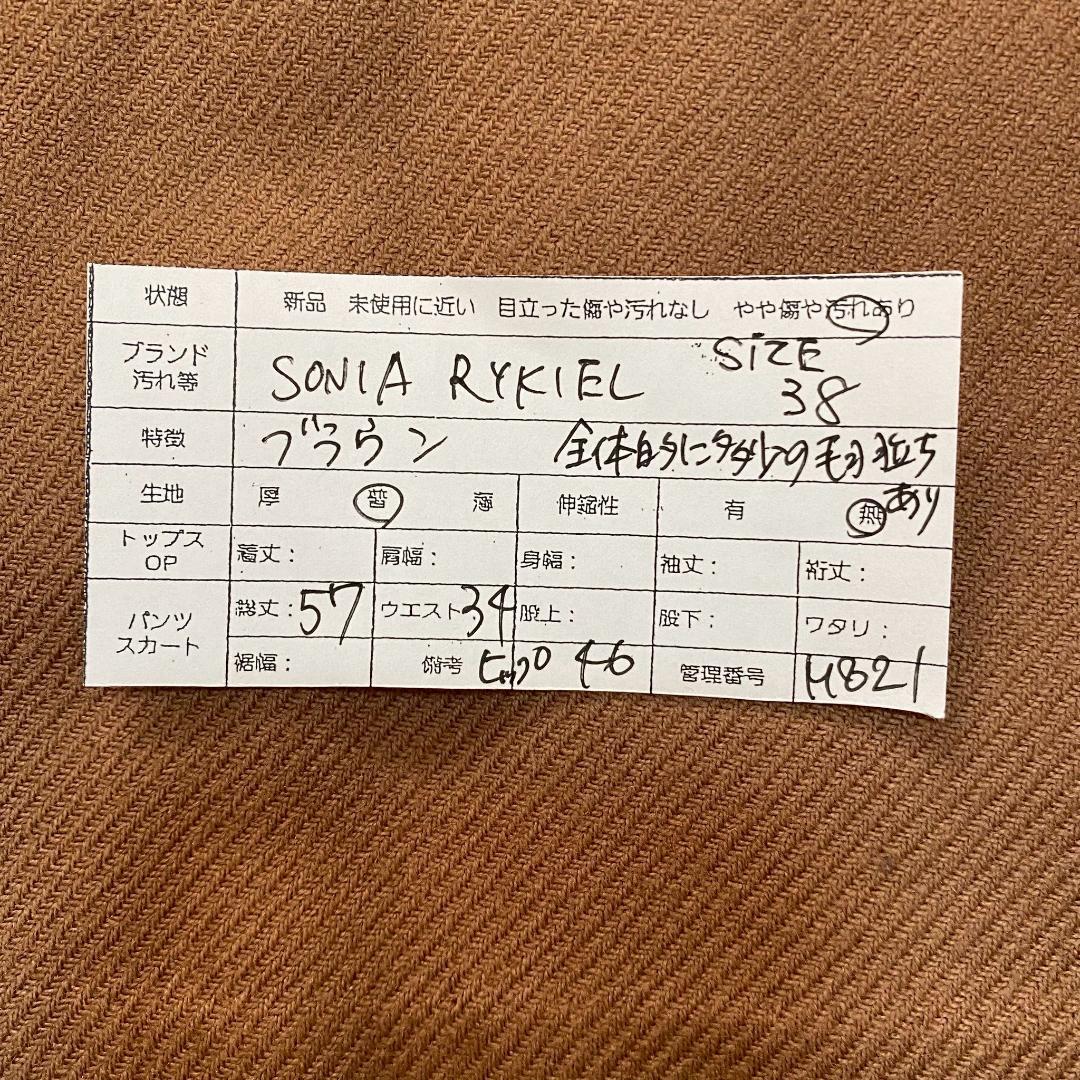 状態 新品 未使用に近い 目立った傷や汚れなし やや傷や汚れあり
ブランド 汚れ等 SONIA RYKIEL SIZE 38
特徴 ブラウン 全体的に多少の毛羽立ち
あり
生地 厚 普 薄 伸縮性 有 無
トップス OP 着丈: 肩幅: 身幅: 袖丈: 裄丈:
パンツ スカート 総丈:57 ウエスト34 股上: 股下: ワタリ:
裾幅: 備考 ヒップ 46 管理番号 H821